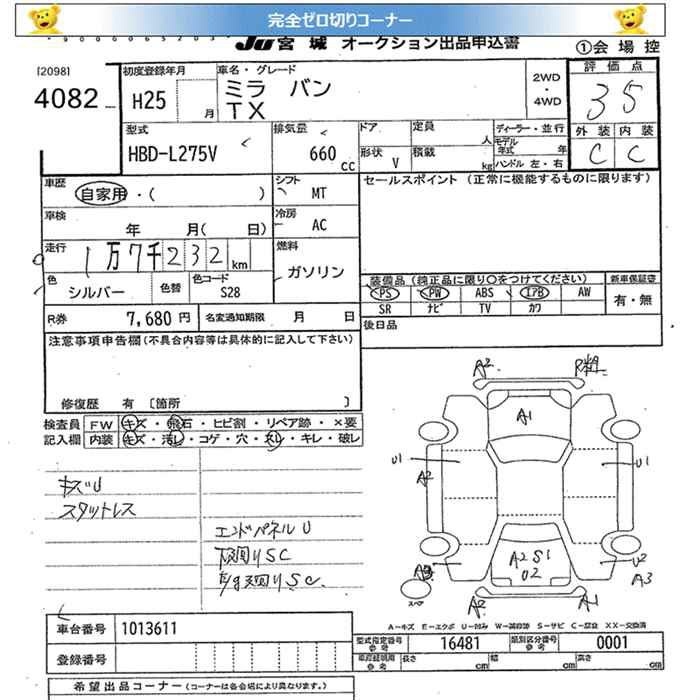 完全ゼロ切りコーナー
JU 宮城 オークション出品申込書
①会場控
[2098]
4082
初度登録年月
H25 月
車名・グレード
ミラ バン
TX
2WD
・
4WD
評価点
35
外装 内装
C C
型式
HBD-L275V
排気量
660 cc
ドア 定員 人
形状 V 積載 kg
ディーラー・並行
モデル年式 年
ハンドル 左・右
車歴
自家用・( )
シフト
MT
セールスポイント (正常に機能するものに限ります)
車検
年 月( 日)
冷房
AC
走行
1万7千232 km
燃料
ガソリン
色
シルバー
色替
色コード
S28
装備品 (純正品に限り○をつけてください)
PS PW ABS エアB AW
SR ナビ TV カワ
新車保証書
有・無
R券 7,680円
名変通知期限 月 日
後日品
注意事項申告欄(不具合内容等は具体的に記入して下さい)
修復歴 有 [箇所 ]
検査員
記入欄
FW キズ・飛石・ヒビ割・リペア跡・×要
内装 キズ・汚レ・コゲ・穴・スレ・キレ・破レ
キズU
スタットレス
エンドパネルU
下廻りSC
A2
A1
U1
A2
U1
A2 S1
U2
U2
A3
A2
A1
スペア
A-キズ E-エクボ U-凹み W-補修跡 S-サビ C-腐食 XX-交換済
車台番号 1013611
登録番号
型式指定番号
参考
16481
類別区分番号
参考
0001
車庫証明用
参考
長さ cm 幅 cm 高さ cm
希望出品コーナー (コーナーは各会場により異なります。)